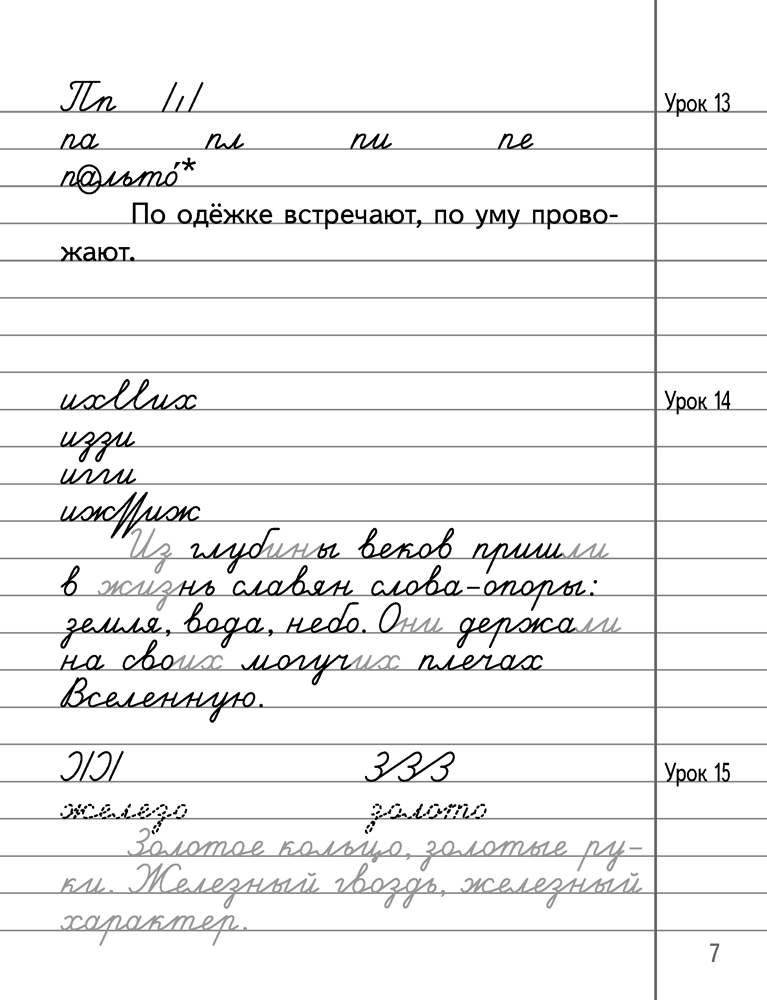 Пп
Урок 13
па пл пи пе
пальто́*
По одёжке встречают, по уму прово-
жают.
их их
Урок 14
иззи
игги
иж иж
Из глубины веков пришли
в жизнь славян слова-опоры:
земля, вода, небо. Они держали
на своих могучих плечах
Вселенную.
З З З
Урок 15
железо золото
Золотое кольцо, золотые ру-
ки. Железный гвоздь, железный
характер.
7